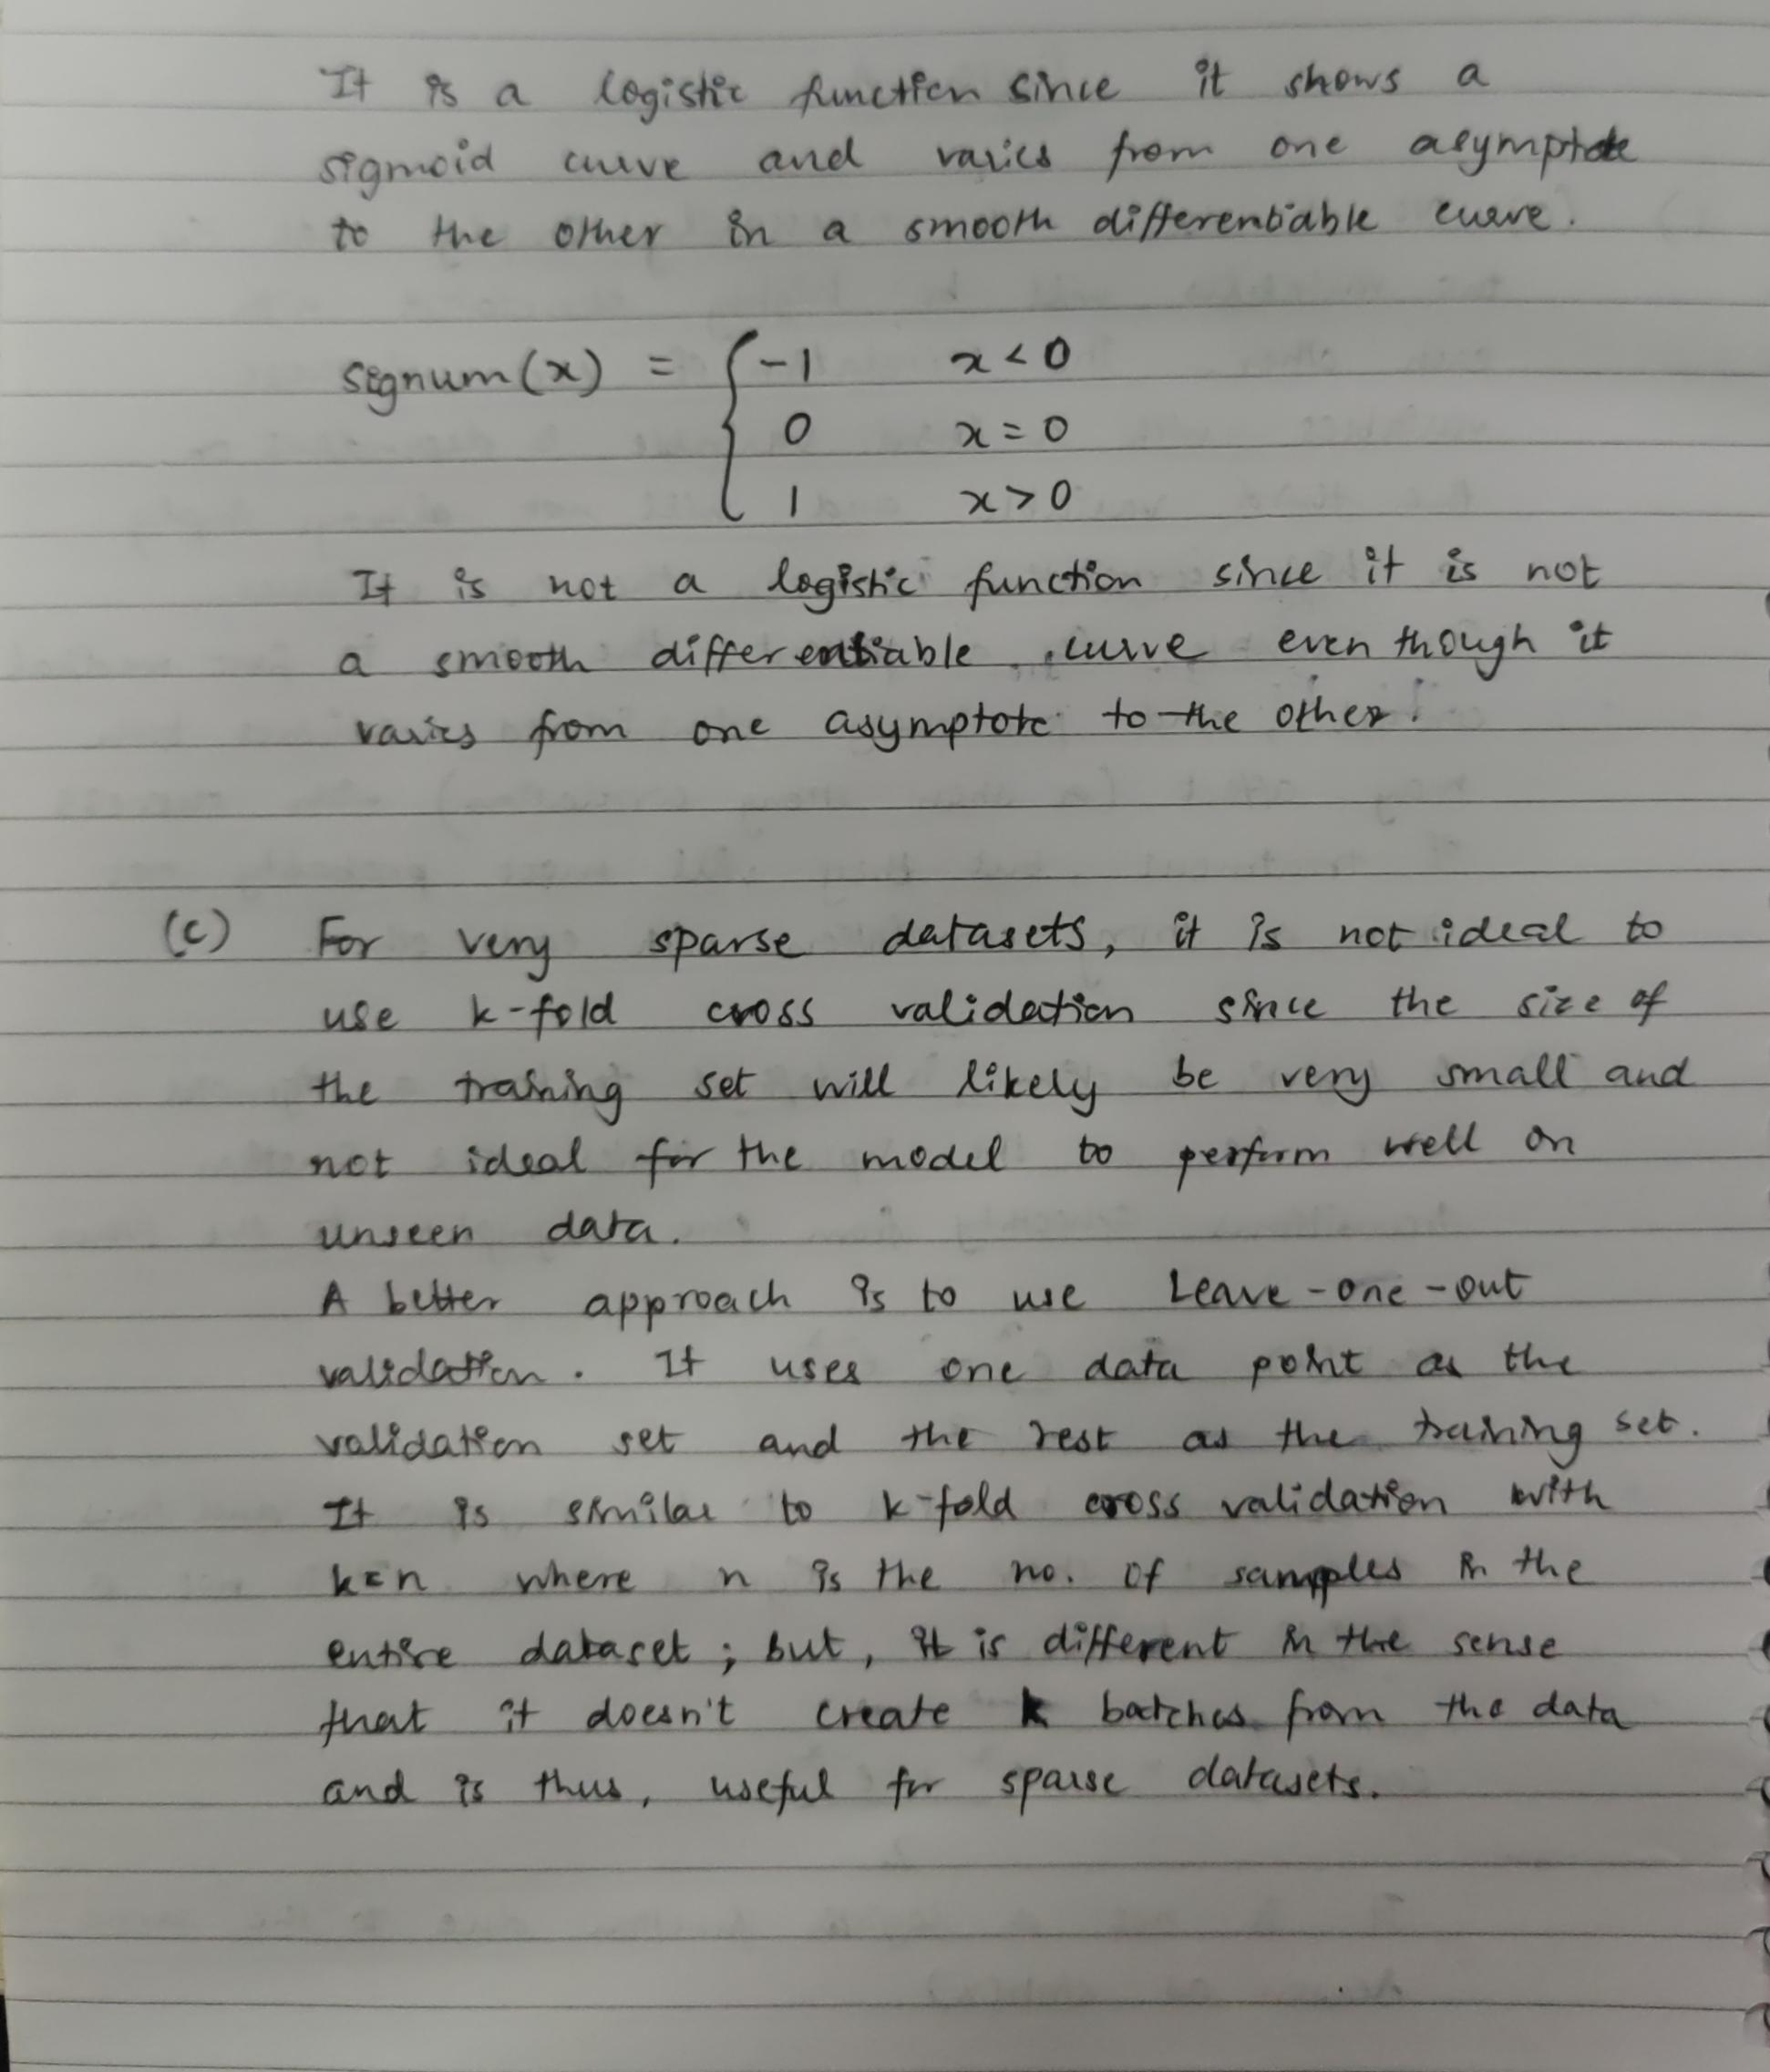 It is a logistic function since it shows a
sigmoid curve and varies from one asymptote
to the other in a smooth differentiable curve.
signum(x) = { -1 x < 0
0 x = 0
1 x > 0
It is not a logistic function since it is not
a smooth differentiable curve even though it
varies from one asymptote to the other.
(c) For very sparse datasets, it is not ideal to
use k-fold cross validation since the size of
the training set will likely be very small and
not ideal for the model to perform well on
unseen data.
A better approach is to use Leave-one-out
validation. It uses one data point as the
validation set and the rest as the training set.
It is similar to k-fold cross validation with
k=n where n is the no. of samples in the
entire dataset; but, it is different in the sense
that it doesn't create k batches from the data
and is thus, useful for sparse datasets.